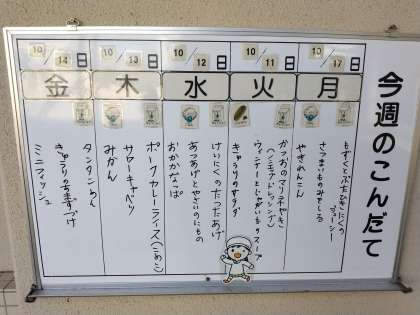 今週のこんだて
10/17日
月
もずくとぶたひきにくの
ジューシー
さつまいものみそしる
やきれんこん
10/11日
火
かつおのマリネやき
(ノンエッグドレッシング)
ウィンナーとじゃがいものスープ
きゅうりのサラダ
10/12日
水
けいにくのたつたあげ
あつあげとやさいのにもの
おかかなっぱ
10/13日
木
ポークカレーライス(こめこ)
サワーキャベツ
みかん
10/14日
金
タンタンめん
きゅうりのちゅうかづけ
ミニフィッシュ